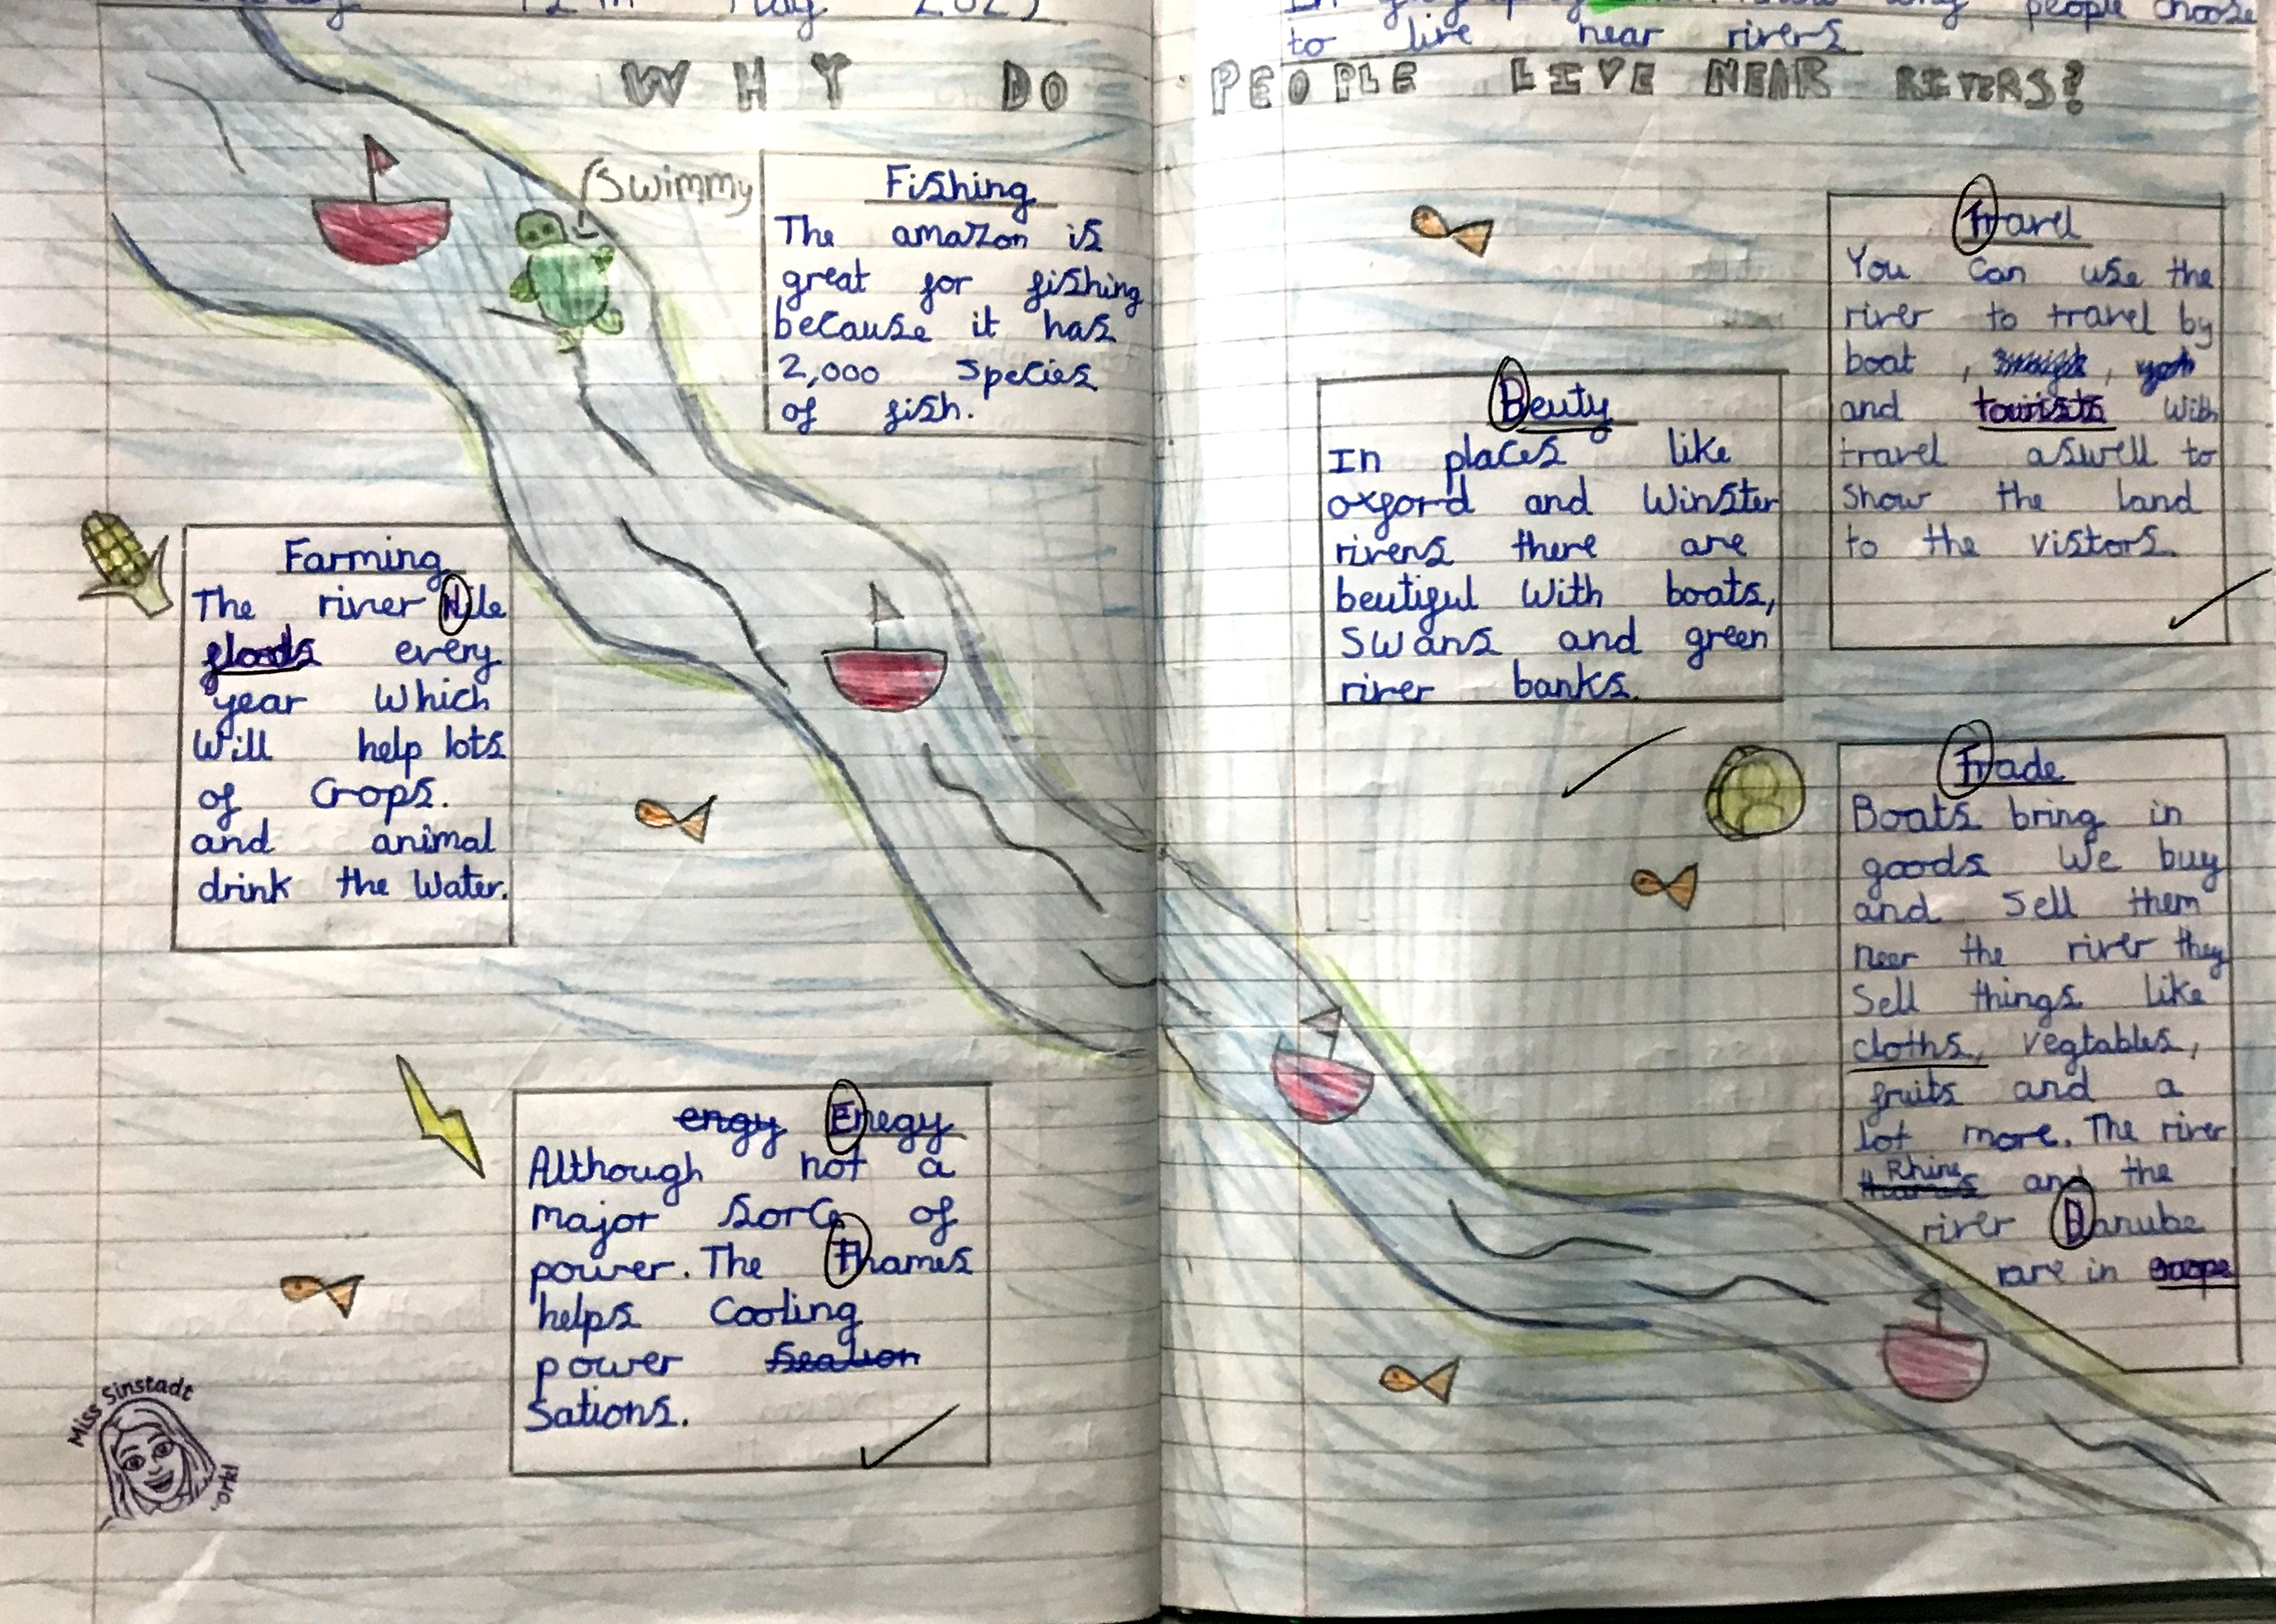 12th May 202
people choose
to live near rivers
WHY DO PEOPLE LIVE NEAR RIVERS?
Swimmy
Fishing
The amazon is
great for fishing
because it has
2,000 species
of fish.
Farming
The river Nile
floods every
year which
will help lots
of crops.
and animal
drink the water.
engy Enegy
Although not a
major sorc of
power. The Thames
helps cooling
power
sations.
Miss Sinstadt
Beuty
In places like
oxford and Winster
rivers there are
beutiful with boats,
swans and green
river banks.
Travel
You can use the
river to travel by
boat , ,
and tourists with
travel aswell to
show the land
to the vistors.
Trade
Boats bring in
goods we buy
and sell them
neer the river they
sell things like
cloths, vegtables,
fruits and a
lot more. The river
Rhine
thames and the
river Danube
are in